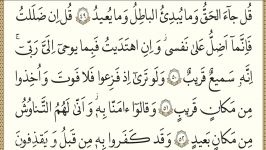 قُلْ جَآءَ الْحَقُّ وَمَا يُبْدِئُ الْبَاطِلُ وَمَا يُعِيدُ ﴿٤٩﴾ قُلْ اِنْ ضَلَلْتُ
فَاِنَّمَآ اَضِلُّ عَلٰى نَفْسِى وَاِنِ اهْتَدَيْتُ فَبِمَا يُوحِىٓ اِلَىَّ رَبِّىۜ
اِنَّهُ سَمِيعٌ قَرِيبٌ ﴿٥٠﴾ وَلَوْ تَرٰىٓ اِذْ فَزِعُوا فَلَا فَوْتَ وَاُخِذُوا
مِنْ مَكَانٍ قَرِيبٍ ﴿٥١﴾ وَقَالُوٓا اٰمَنَّا بِهِۚ وَاَنّٰى لَهُمُ التَّنَاوُشُ
مِنْ مَكَانٍ بَعِيدٍ ﴿٥٢﴾ وَقَدْ كَفَرُوا بِهِ مِنْ قَبْلُ وَيَقْذِفُونَ